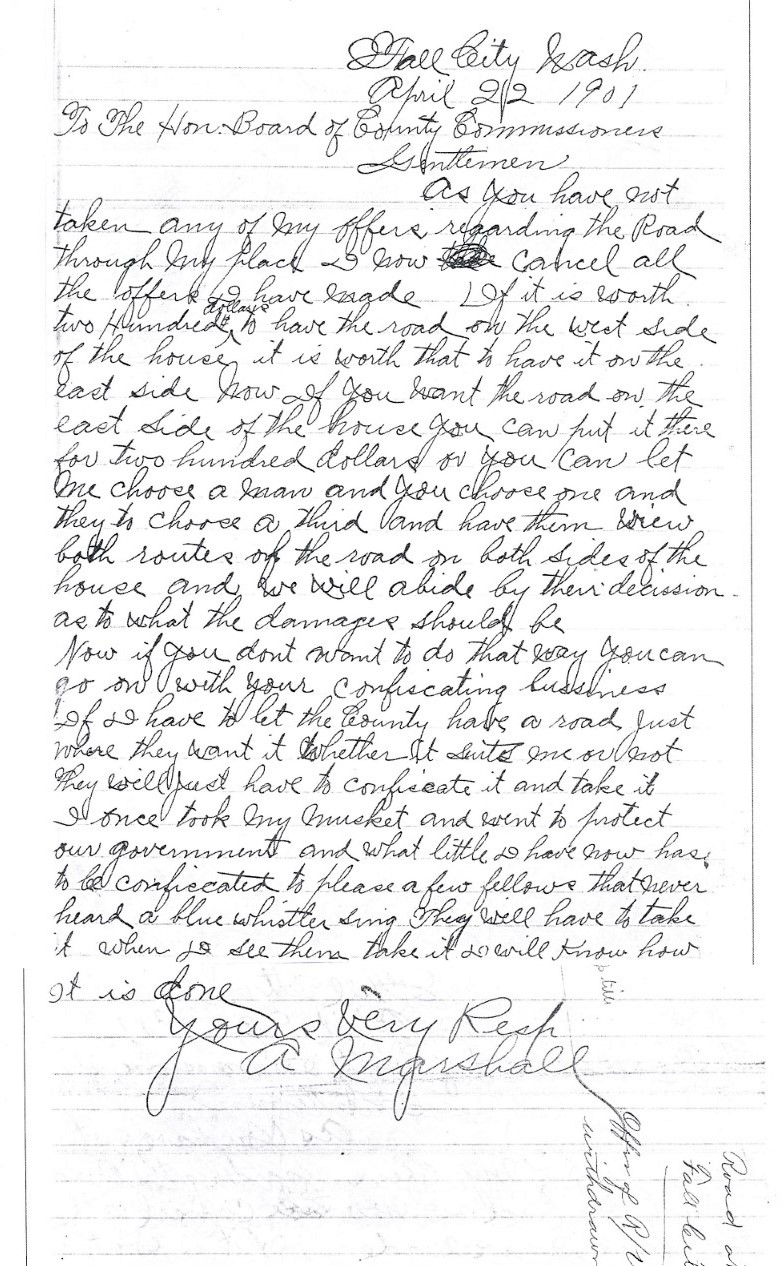 Fall City Wash.
April 22 1901
To The Hon. Board of County Commissioners
Gentlemen
As you have not
taken any of my offers regarding the Road
through my place I now cancel all
the offers I have made If it is worth
dollars
two Hundred to have the road on the west side
of the house, it is worth that to have it on the
east side Now If you want the road on the
east side of the house you can put it there
for two hundred dollars or you can let
me choose a man and you choose one and
they to choose a third and have them view
both routes of the road on both sides of the
house and we will abide by their decission
as to what the damages should be
Now if you dont want to do that way you can
go on with your confiscating bussiness
If I have to let the County have a road just
where they want it whether it suits me or not
they will just have to confiscate it and take it
I once took my musket and went to protect
our government and what little I have now has
to be conficcated to please a few fellows that never
heard a blue whistler sing They will have to take
it when I see them take it I will know how
it is done
Yours Very Resp
A Marshall
Offer of
withdrawn
Road
Fall